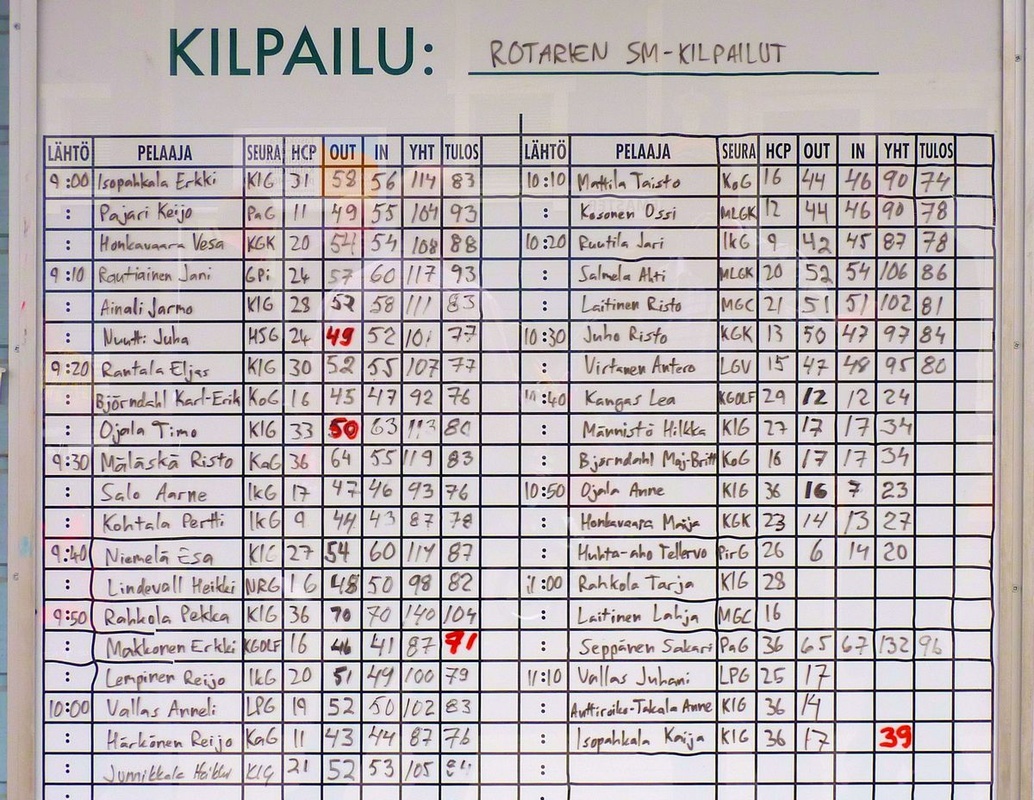 KILPAILU: ROTARIEN SM-KILPAILUT
LÄHTÖ PELAAJA SEURA HCP OUT IN YHT TULOS
9:00 Isopahkala Erkki KIG 31 58 56 114 83
: Pajari Keijo PaG 11 49 55 104 93
: Honkavaara Vesa KGK 20 54 54 108 88
9:10 Rautiainen Jani GPi 24 57 60 117 93
: Ainali Jarmo KIG 28 52 58 111 83
: Nuutti Juha HSG 24 49 52 101 77
9:20 Rantala Eljas KIG 30 52 55 107 77
: Björndahl Karl-Erik KoG 16 45 47 92 76
: Ojala Timo KIG 33 50 63 113 80
9:30 Mäläskä Risto KaG 36 64 55 119 83
: Salo Aarne IkG 17 47 46 93 76
: Kohtala Pertti IkG 9 44 43 87 78
9:40 Niemelä Esa KIG 27 54 60 114 87
: Lindevall Heikki NRG 16 48 50 98 82
9:50 Rahkola Pekka KIG 36 70 70 140 104
: Makkonen Erkki KGOLF 16 46 41 87 71
: Lempinen Reijo IkG 20 51 49 100 79
10:00 Vallas Anneli LPG 19 52 50 102 83
: Härkönen Reijo KaG 11 43 44 87 76
: Junnikkala Heikki KIG 21 52 53 105 84
:
LÄHTÖ PELAAJA SEURA HCP OUT IN YHT TULOS
10:10 Mattila Taisto KoG 16 44 46 90 74
: Kosonen Ossi MLGK 12 44 46 90 78
10:20 Ruutila Jari IkG 9 42 45 87 78
: Salmela Ahti MLGK 20 52 54 106 86
: Laitinen Risto MGC 21 51 51 102 81
10:30 Juho Risto KGK 13 50 47 97 84
: Virtanen Antero LGV 15 47 48 95 80
:40 Kangas Lea KGOLF 29 12 12 24
: Männistö Hilkka KIG 27 17 17 34
: Björndahl Maj-Britt KoG 16 17 17 34
10:50 Ojala Anne KIG 36 16 7 23
: Honkavaara Maija KGK 23 14 13 27
: Huhta-aho Tellervo PirG 26 6 14 20
11:00 Rahkola Tarja KIG 28
: Laitinen Lahja MGC 16
: Seppänen Sakari PaG 36 65 67 132 96
11:10 Vallas Juhani LPG 25 17
: Anttiroiko-Takala Anne KIG 36 14
: Isopahkala Kaija KIG 36 17 39
:
: